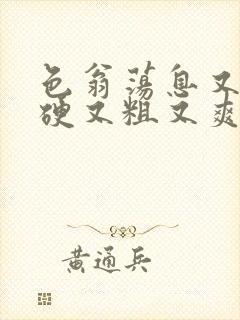 色翁荡息又
硬又粗又爽
黄通兵